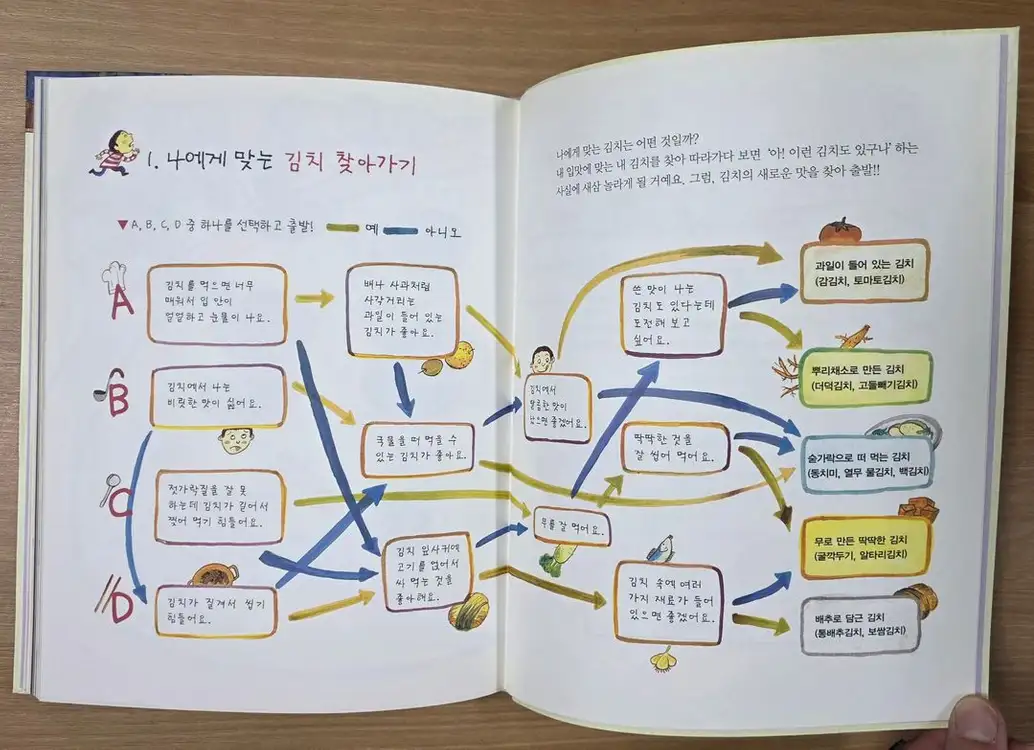 1. 나에게 맞는 김치 찾아가기
▼A, B, C, D 중 하나를 선택하고 출발!
예
아니오
A
김치를 먹으면 너무
매워서 입 안이
얼얼하고 눈물이 나요.
배나 사과처럼
사각거리는
과일이 들어 있는
김치가 좋아요.
B
김치에서 나는
비릿한 맛이 싫어요.
국물을 떠 먹을 수
있는 김치가 좋아요.
C
젓가락질을 잘 못
하는데 김치가 길어서
찢어 먹기 힘들어요.
김치 잎사귀에
고기를 얹어서
싸 먹는 것을
좋아해요.
D
김치가 질겨서 씹기
힘들어요.
나에게 맞는 김치는 어떤 것일까?
내 입맛에 맞는 내 김치를 찾아 따라가다 보면 '아! 이런 김치도 있구나' 하는
사실에 새삼 놀라게 될 거예요. 그럼, 김치의 새로운 맛을 찾아 출발!!
쓴 맛이 나는
김치도 있다는데
도전해 보고
싶어요.
과일이 들어 있는 김치
(감김치, 토마토김치)
뿌리채소로 만든 김치
(더덕김치, 고들빼기김치)
김치에서
달콤한 맛이
났으면 좋겠어요.
딱딱한 것을
잘 씹어 먹어요.
숟가락으로 떠 먹는 김치
(동치미, 열무 물김치, 백김치)
무를 잘 먹어요.
무로 만든 딱딱한 김치
(굴깍두기, 알타리김치)
김치 속에 여러
가지 재료가 들어
있으면 좋겠어요.
배추로 담근 김치
(통배추김치, 보쌈김치)